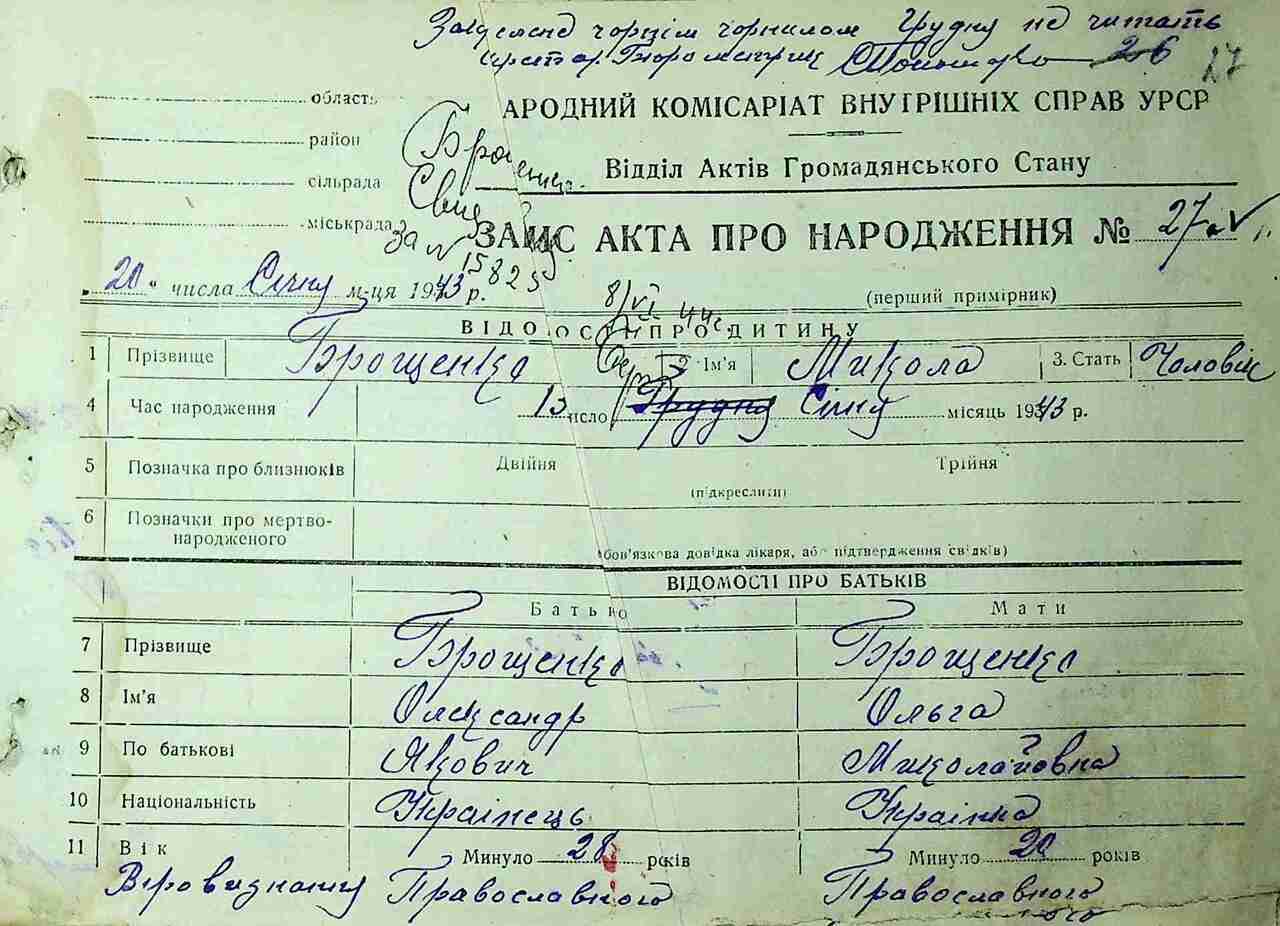 чорним чорнилом Грудня не читать
26 27
область
АРОДНИЙ КОМІСАРІАТ ВНУТРІШНІХ СПРАВ УРСР
район
сільрада
Відділ Актів Громадянського Стану
міськрада
за № 15825
ЗАПИС АКТА ПРО НАРОДЖЕННЯ № 27
"20" числа Січня м-ця 1943 р.
8/VI 44
(перший примірник)
ВІДОМОСТІ ПРО ДИТИНУ
1 Прізвище Брощенко 2 Ім'я Микола 3. Стать Чоловік
4 Час народження 13 число Грудня Січня місяць 1943 р.
5 Позначка про близнюків Двійня Трійня
(підкреслити)
6 Позначки про мертво-
народженого
(обов'язкова довідка лікаря, або підтвердження свідків)
ВІДОМОСТІ ПРО БАТЬКІВ
Батько Мати
7 Прізвище Брощенко Брощенко
8 Ім'я Олександр Ольга
9 По батькові Якович Миколайовна
10 Національність Українець Українка
11 Вік Минуло 28 років Минуло 20 років
Віровизнання Православного Православного